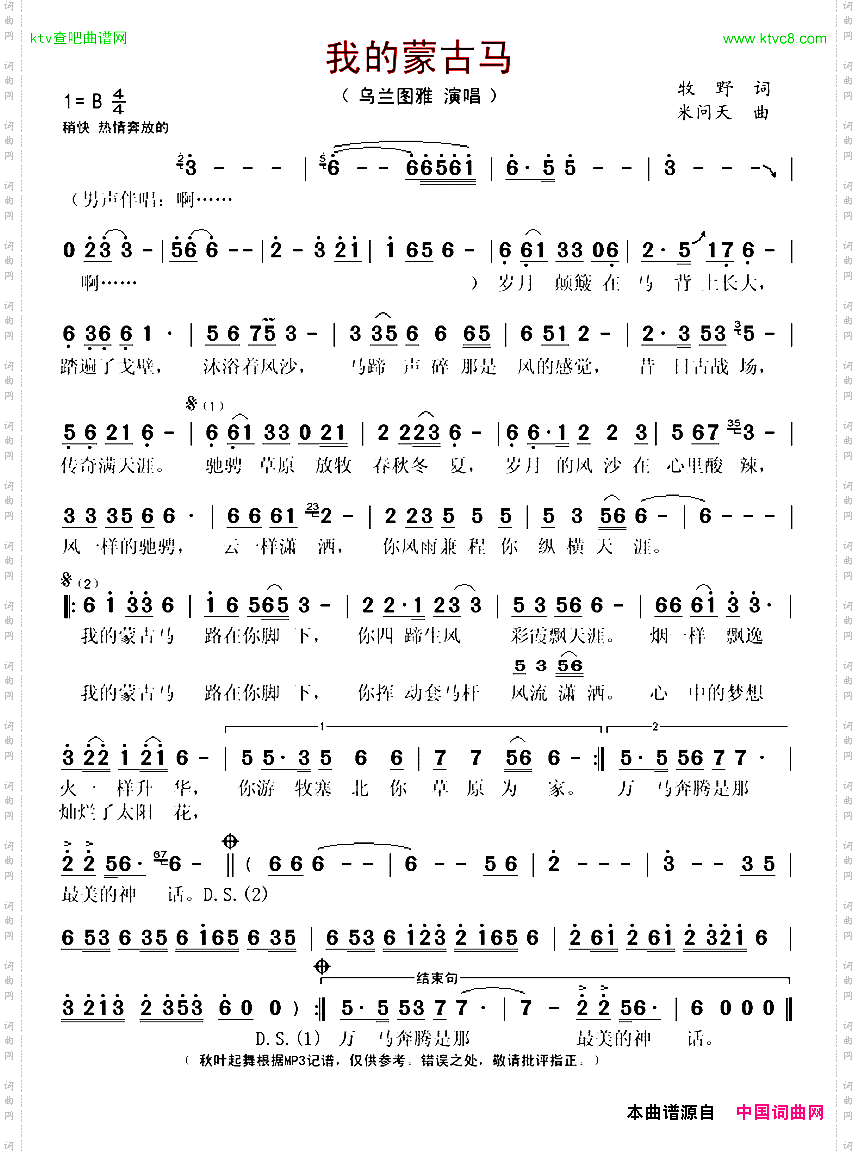 ktv查吧曲谱网
www.ktvc8.com
我的蒙古马
( 乌兰图雅 演唱 )
牧 野 词
米问天 曲
1= B 4/4
稍快 热情奔放的
2 3 - - - | 5 6 - - 66561 | 6·5 5 - - | 3 - - - |
(男声伴唱：啊……
0 23 3 - | 56 6 - - | 2 - 3 21 | 1 65 6 - | 6 61 33 06 | 2·5 17 6 - |
啊…… ) 岁月 颠簸 在 马 背 上长大，
6 36 6 1· | 5 6 75 3 - | 3 35 6 6 65 | 6 51 2 - | 2·3 53 3 5 - |
踏遍了戈壁， 沐浴着风沙， 马蹄 声 碎 那是 风的感觉， 昔 日古战 场，
𝄋(1)
5 6 21 6 - | 6 61 33 0 21 | 2 223 6 - | 66·1 2 2 3 | 5 67 35 3 - |
传奇满天涯。 驰骋 草原 放牧 春秋冬 夏， 岁月 的风 沙 在 心里酸 辣，
3 3 35 6 6· | 6 6 61 23 2 - | 2 23 5 5 5 | 5 3 56 6 - | 6 - - - |
风一样的驰骋， 云一样潇 洒， 你风雨兼 程 你 纵 横 天 涯。
𝄋(2)
‖: 6 1 33 6 | 1 6 565 3 - | 2 2·1 23 3 | 5 3 56 6 - | 66 61 3 3· |
我的蒙古马 路在你脚 下， 你四 蹄生风 彩霞飘天涯。 烟一样 飘逸
5 3 56
我的蒙古马 路在你脚 下， 你挥 动套马杆 风流 潇 洒。 心 中的梦想
1 2
3 22 1 21 6 - | 5 5·3 5 6 6 | 7 7 56 6 - :‖ 5·5 56 7 7· |
火一样升 华， 你游 牧塞 北 你 草 原 为 家。 万 马奔腾是那
灿烂了太阳 花，
2 2 56· 67 6 - ‖ ( 6 6 6 6 - - | 6 - - 5 5 | 2 - - - | 3 - - 3 5 |
最美的神 话。D.S.(2)
6 53 6 35 6 165 6 35 | 6 53 6 123 2 165 6 | 2 61 2 61 2 321 6 |
结束句
3 213 2 353 6 0 0 ) :‖ 5·5 53 7 7· | 7 - 2 2 | 56· 6 0 0 0 ‖
D.S.(1) 万 马奔腾是那 最美的神 话。
( 秋叶起舞根据MP3记谱，仅供参考。错误之处，敬请批评指正。)
本曲谱源自 中国词曲网